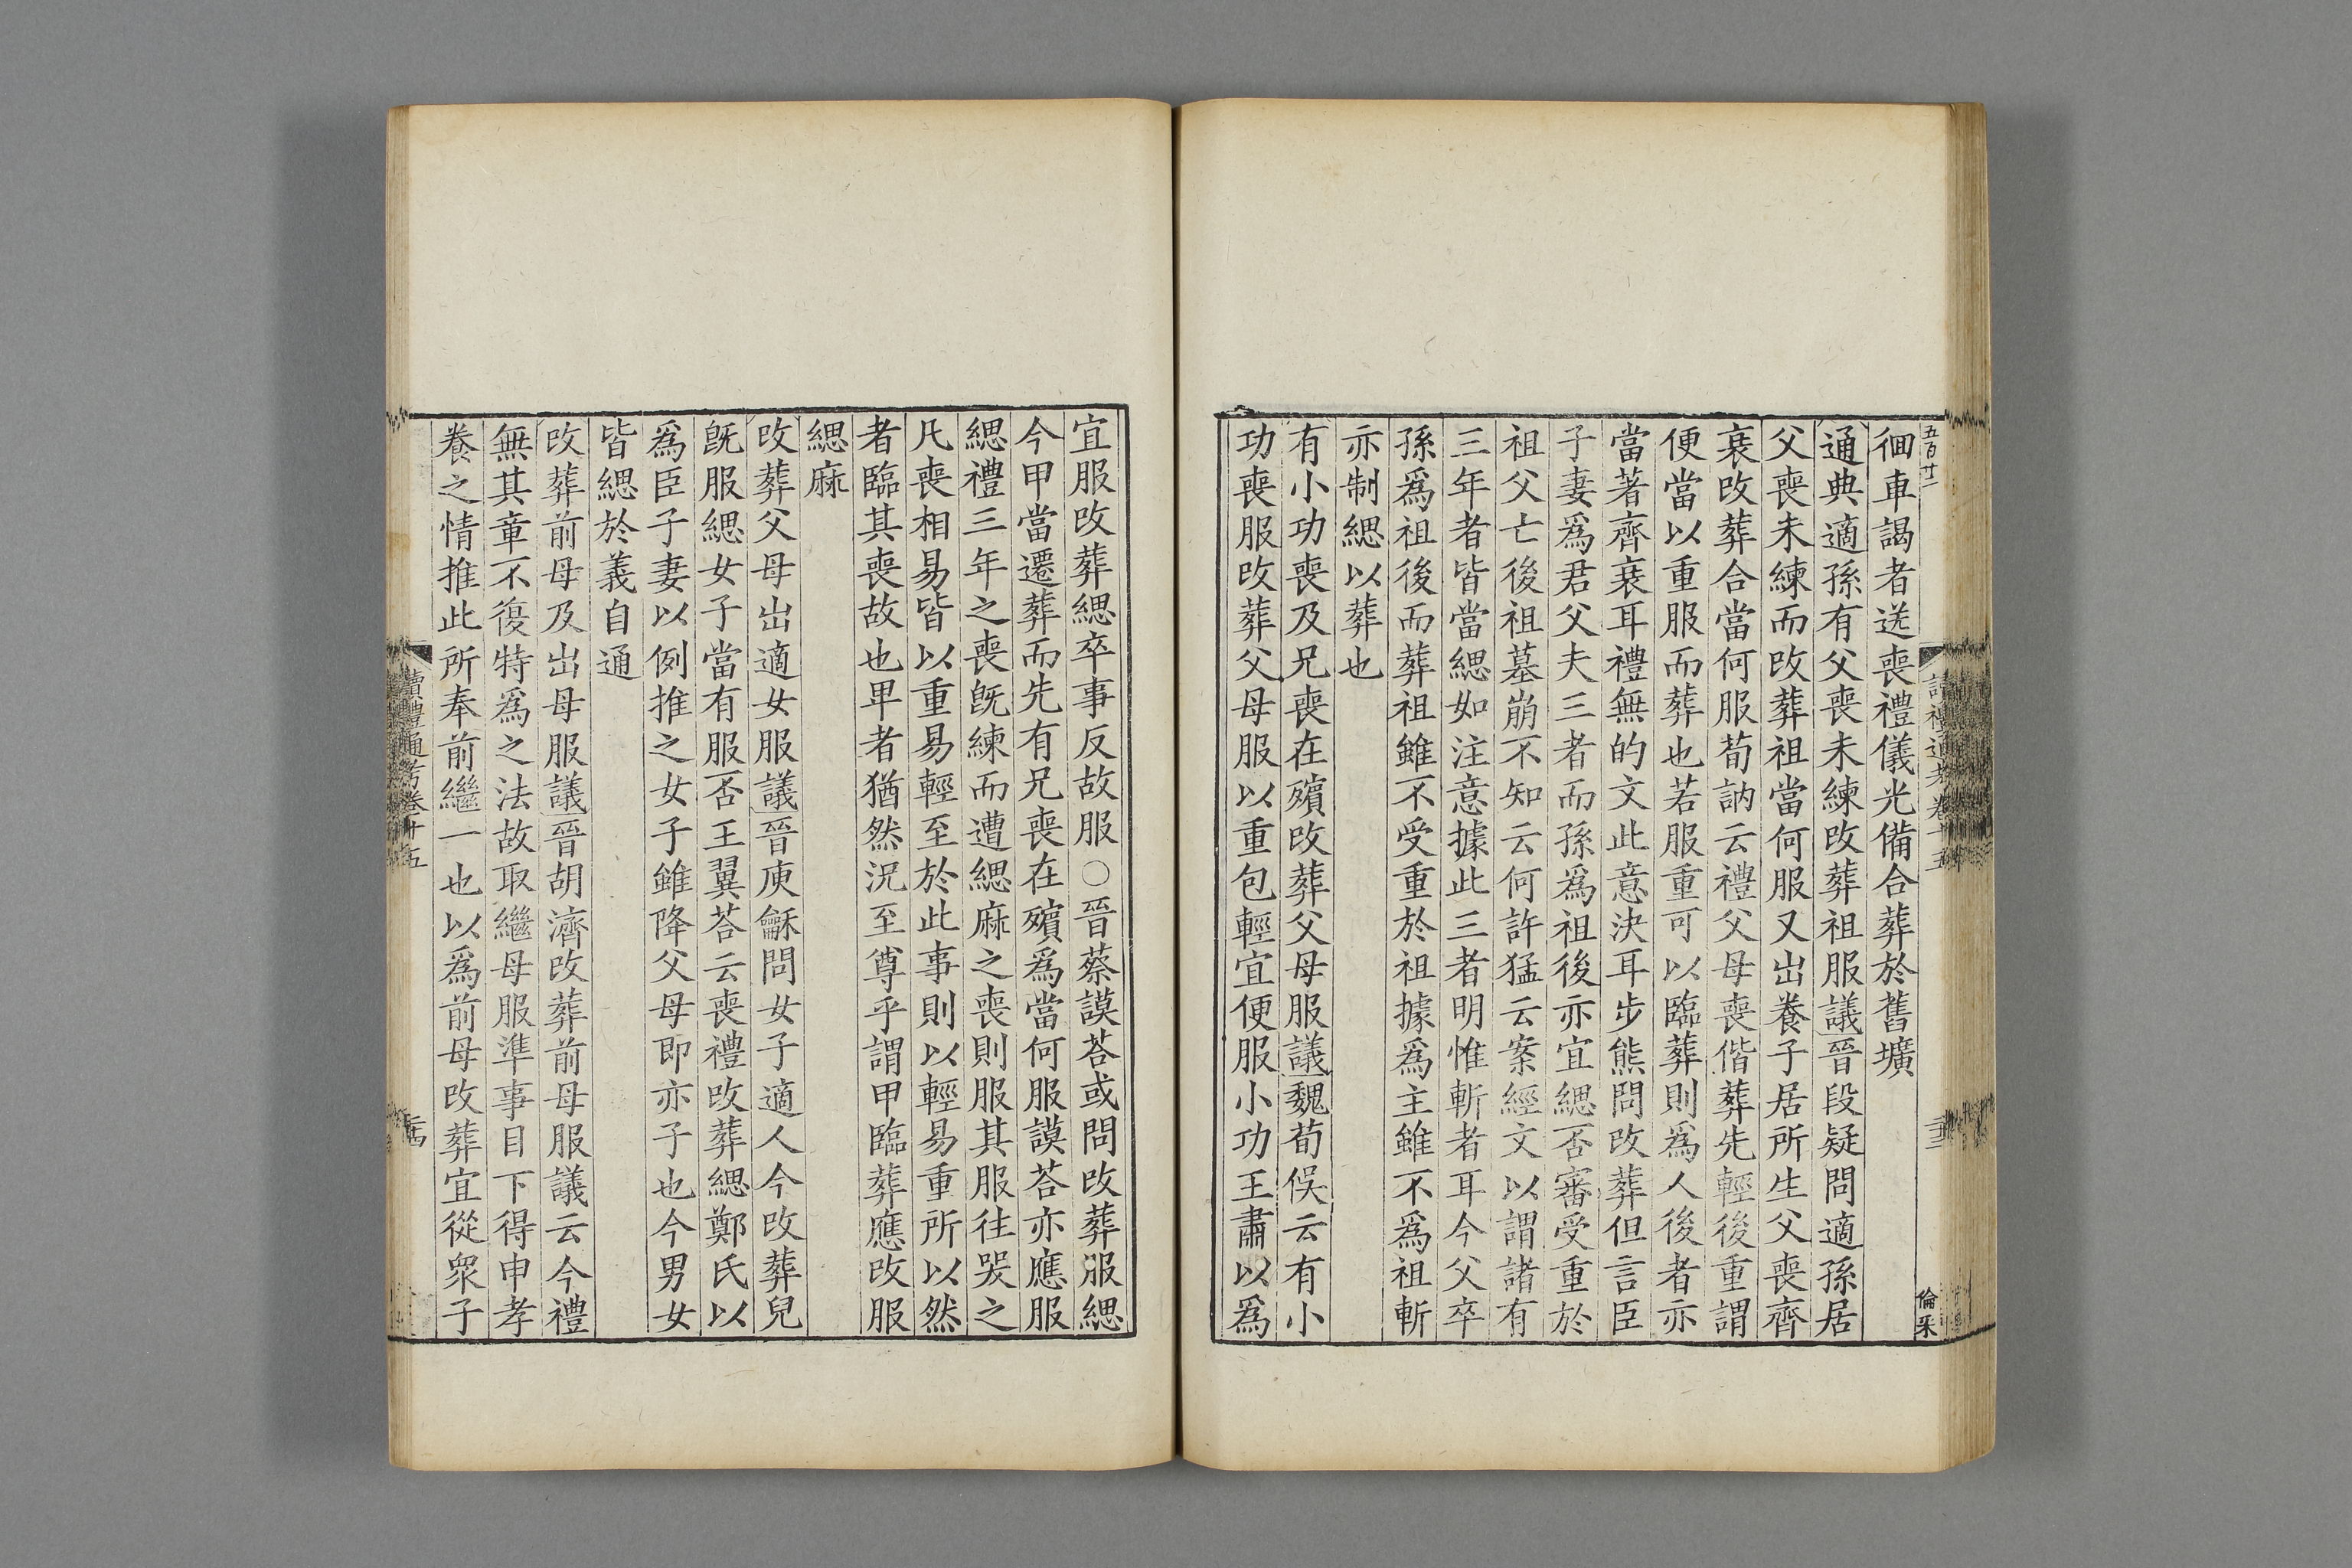 五百廿一
讀禮通考卷十五
三三
倫采
徊車謁者送喪禮儀光備合葬於舊壙
通典適孫有父喪未練改葬祖服議晉段疑問適孫居
父喪未練而改葬祖當何服又出養子居所生父喪齊
衰改葬合當何服荀訥云禮父母喪偕葬先輕後重謂
便當以重服而葬也若服重可以臨葬則爲人後者亦
當著齊衰耳禮無的文此意決耳步熊問改葬但言臣
子妻爲君父夫三者而孫爲祖後亦宜緦否審受重於
祖父亡後祖墓崩不知云何許猛云案經文以謂諸有
三年者皆當緦如注意據此三者明惟斬者耳今父卒
孫爲祖後而葬祖雖不受重於祖據爲主雖不爲祖斬
亦制緦以葬也
有小功喪及兄喪在殯改葬父母服議魏荀俁云有小
功喪服改葬父母服以重包輕宜便服小功王肅以爲
宜服改葬緦卒事反故服○晉蔡謨荅或問改葬服緦
今甲當遷葬而先有兄喪在殯爲當何服謨荅亦應服
緦禮三年之喪旣練而遭緦麻之喪則服其服往哭之
凡喪相易皆以重易輕至於此事則以輕易重所以然
者臨其喪故也卑者猶然況至尊乎謂甲臨葬應改服
緦麻
改葬父母出適女服議晉庾龢問女子適人今改葬兒
旣服緦女子當有服否王翼荅云喪禮改葬緦鄭氏以
爲臣子妻以例推之女子雖降父母即亦子也今男女
皆緦於義自通
改葬前母及出母服議晉胡濟改葬前母服議云今禮
無其章不復特爲之法故取繼母服準事目下得申孝
養之情推此所奉前繼一也以爲前母改葬宜從衆子
讀禮通考卷十五